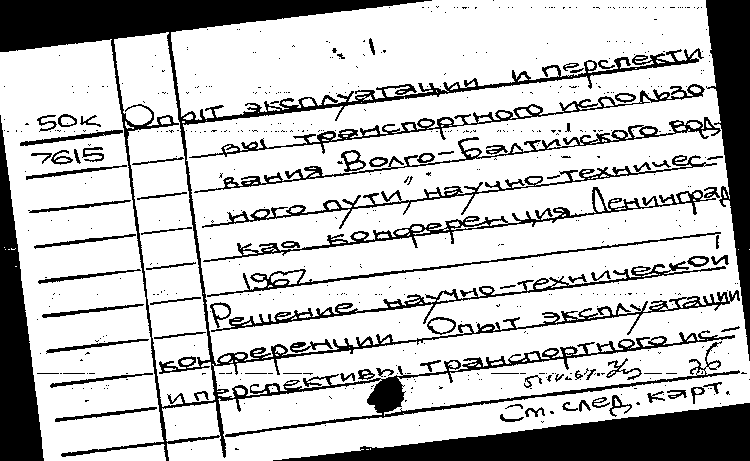 1.
50К
7615
Опыт эксплуатации и перспекти
вы транспортного использо-
вания Волго-Балтийского вод-
ного пути", научно-техничес-
кая конференция Ленинград
1967.
Решение научно-технической
конференции „Опыт эксплуатации
и перспективы транспортного ис-
См. след. карт.